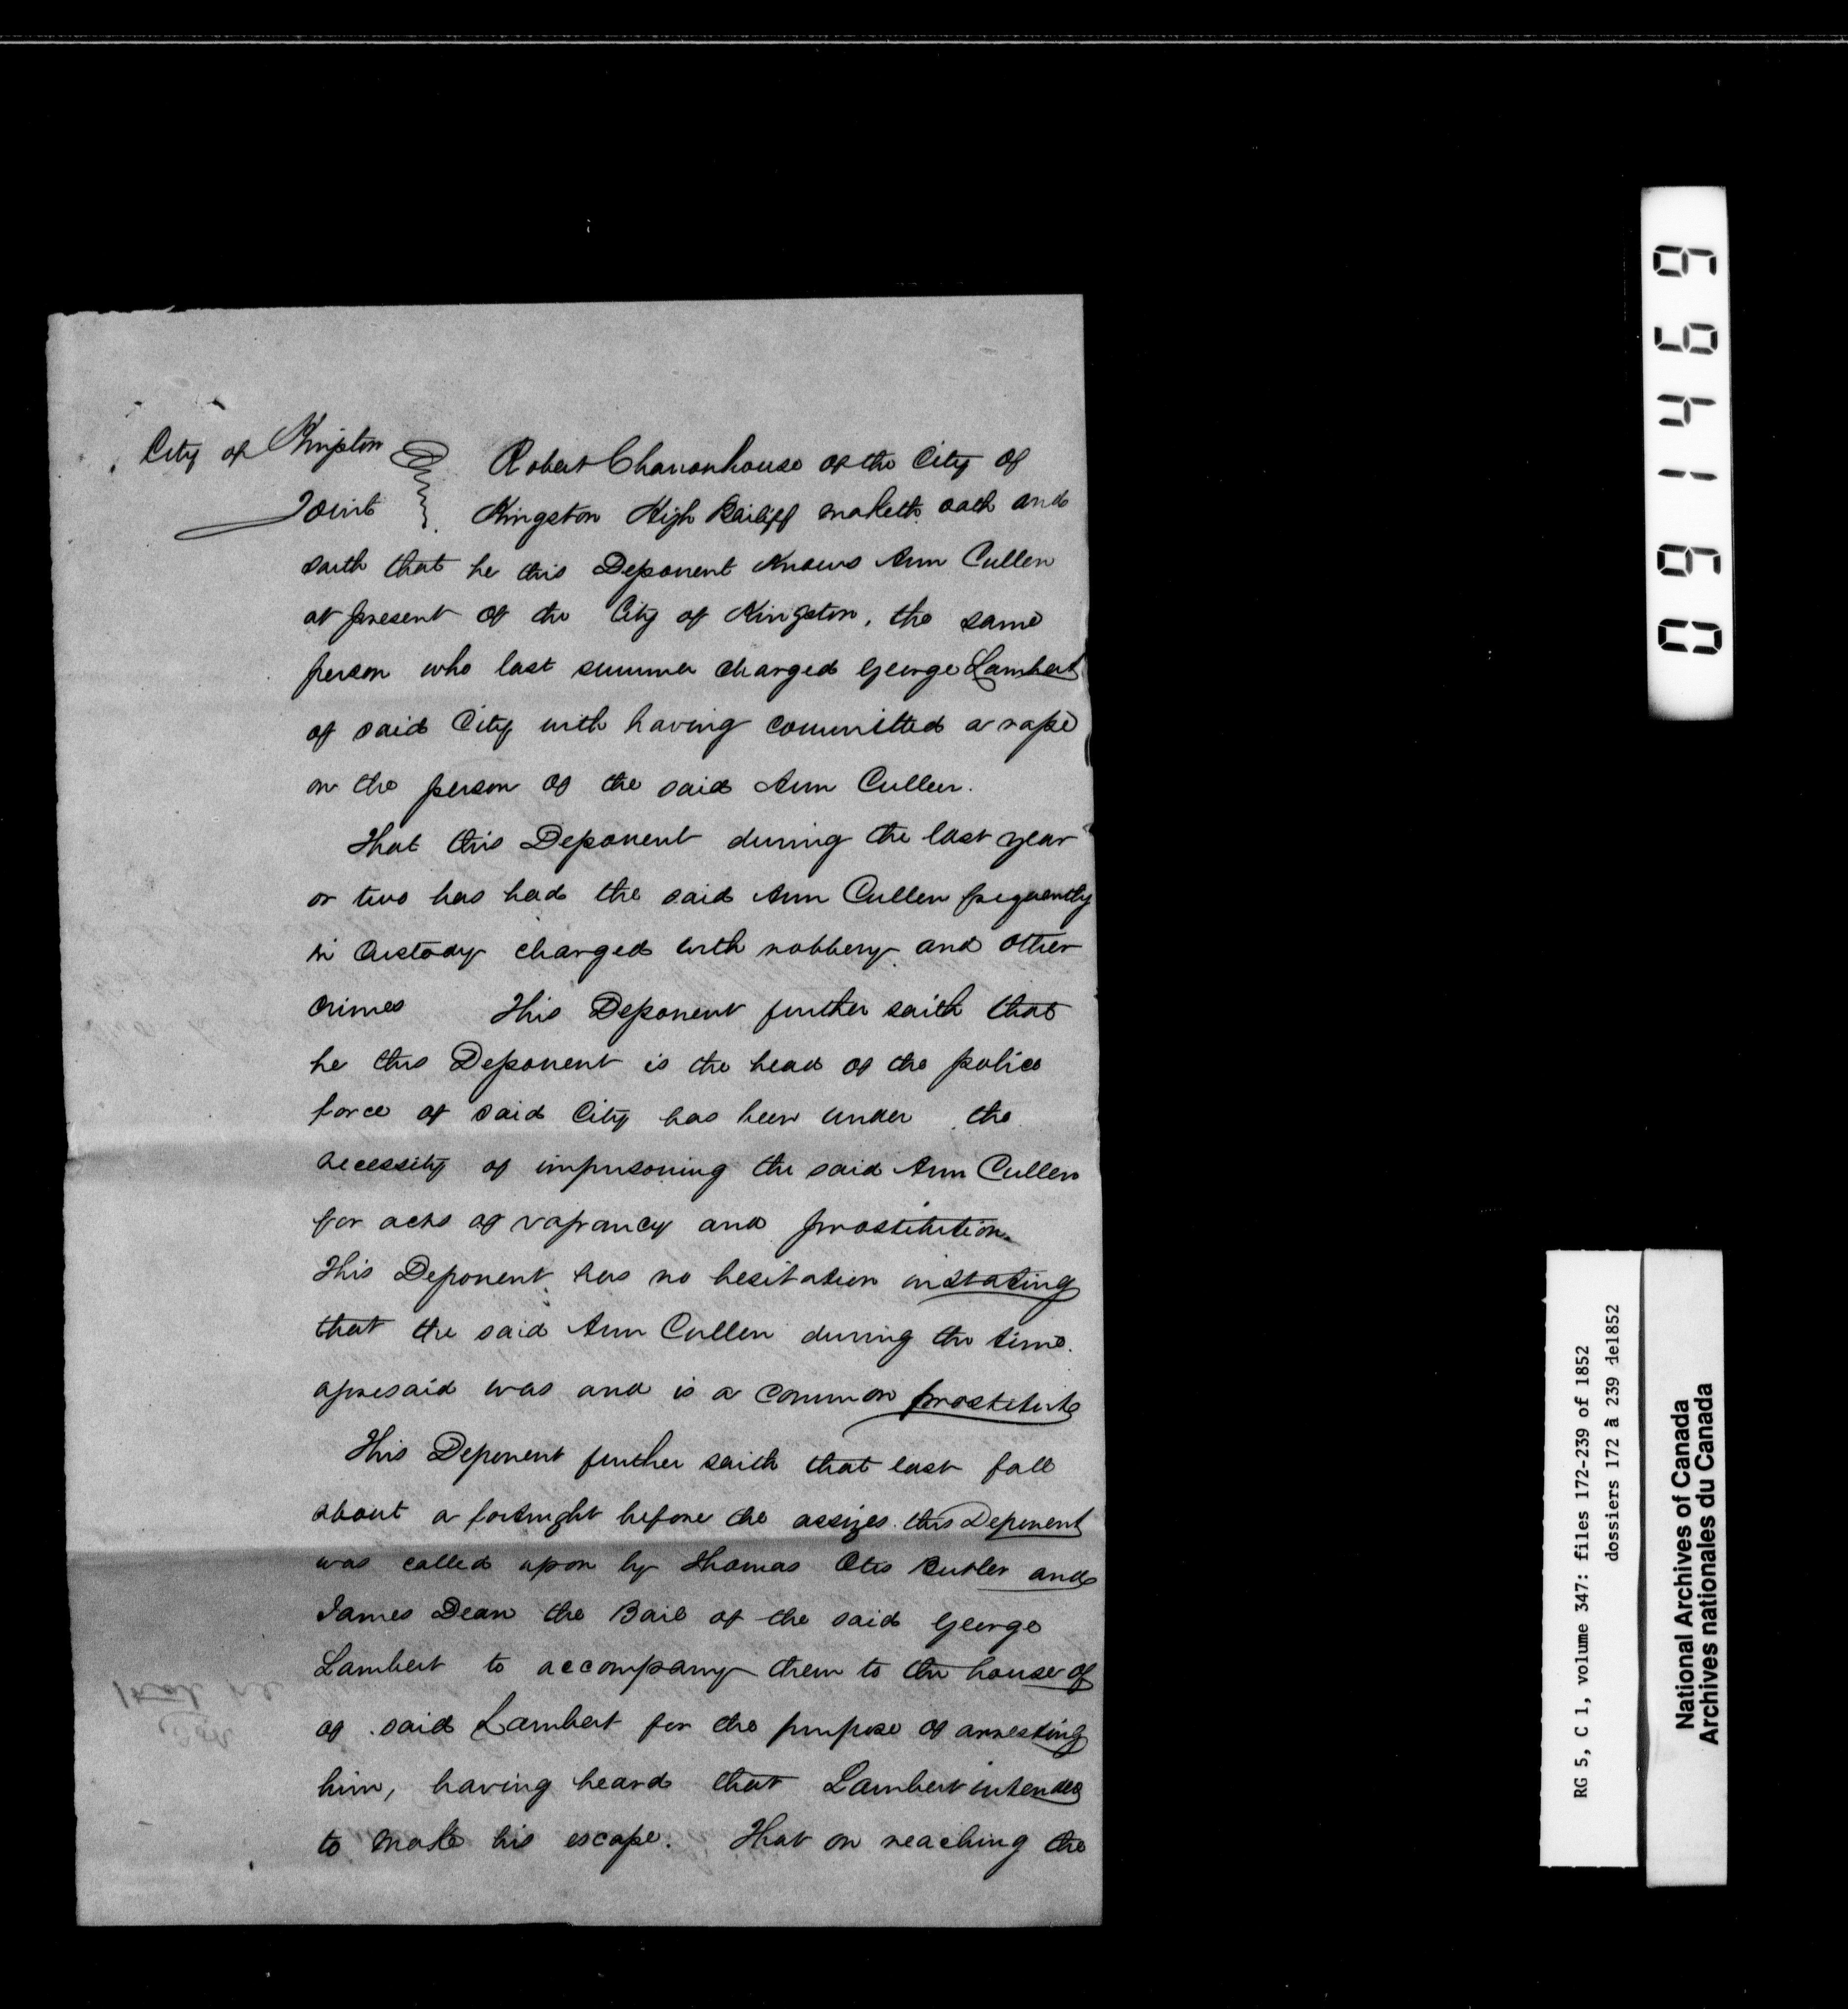 City of Kingston
Robert Chanonhouse of the City of
Toint Kingston High Bailiff maketh oath and
saith that he this Deponent knows Ann Cullen
at present of the City of Kingston, the same
person who last summer charged George Lambert
of said City with having committed a rape
on the person of the said Ann Cullen.
That this Deponent during the last year
or two has had the said Ann Cullen frequently
in Custody charged with robbery and other
Crimes This Deponent further saith that
he this Deponent is the head of the police
force of said City has been under the
necessity of imprisoning the said Ann Cullen
for acts of vagrancy and prostitution.
This Deponent has no hesitation in stating
that the said Ann Cullen during the time
aforesaid was and is a common prostitute
This Deponent further saith that last fall
about a fortnight before the assizes this Deponent
was called upon by Thomas Otis Butler and
James Dean the Bail of the said George
Lambert to accompany them to the house of
of said Lambert for the purpose of arresting
him, having heard that Lambert intended
to make his escape. That on reaching the
091469
RG 5, C 1, volume 347: files 172-239 of 1852
dossiers 172 à 239 de1852
National Archives of Canada
Archives nationales du Canada